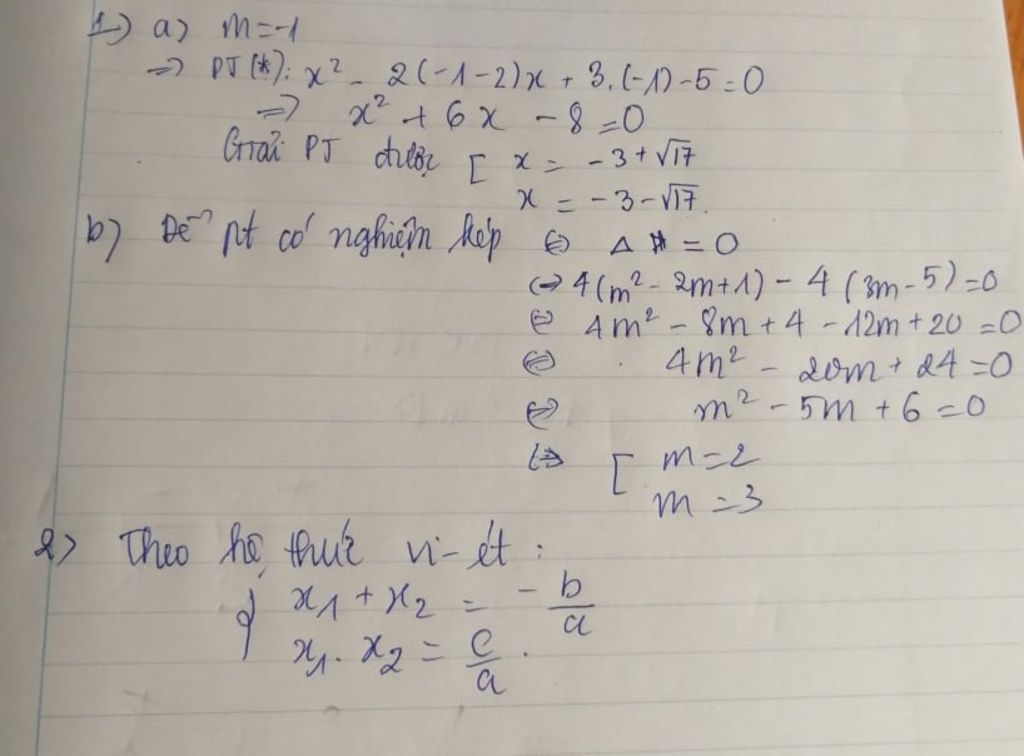 1) a) m=-1
=> PT(*): x² - 2(-1-2)x + 3.(-1)-5=0
=> x² + 6x - 8=0
Giải PT được [ x = -3+√17
x = -3-√17.
b) Để pt có nghiệm kép ⇔ Δ = 0
⇔ 4(m²- 2m+1) - 4(3m-5)=0
⇔ 4m² - 8m + 4 - 12m + 20 = 0
⇔ 4m² - 20m + 24 = 0
⇔ m² - 5m + 6 = 0
⇔ [ m=2
m=3
2) Theo hệ thức vi-ét:
{ x₁ + x₂ = -b/a
x₁. x₂ = c/a.